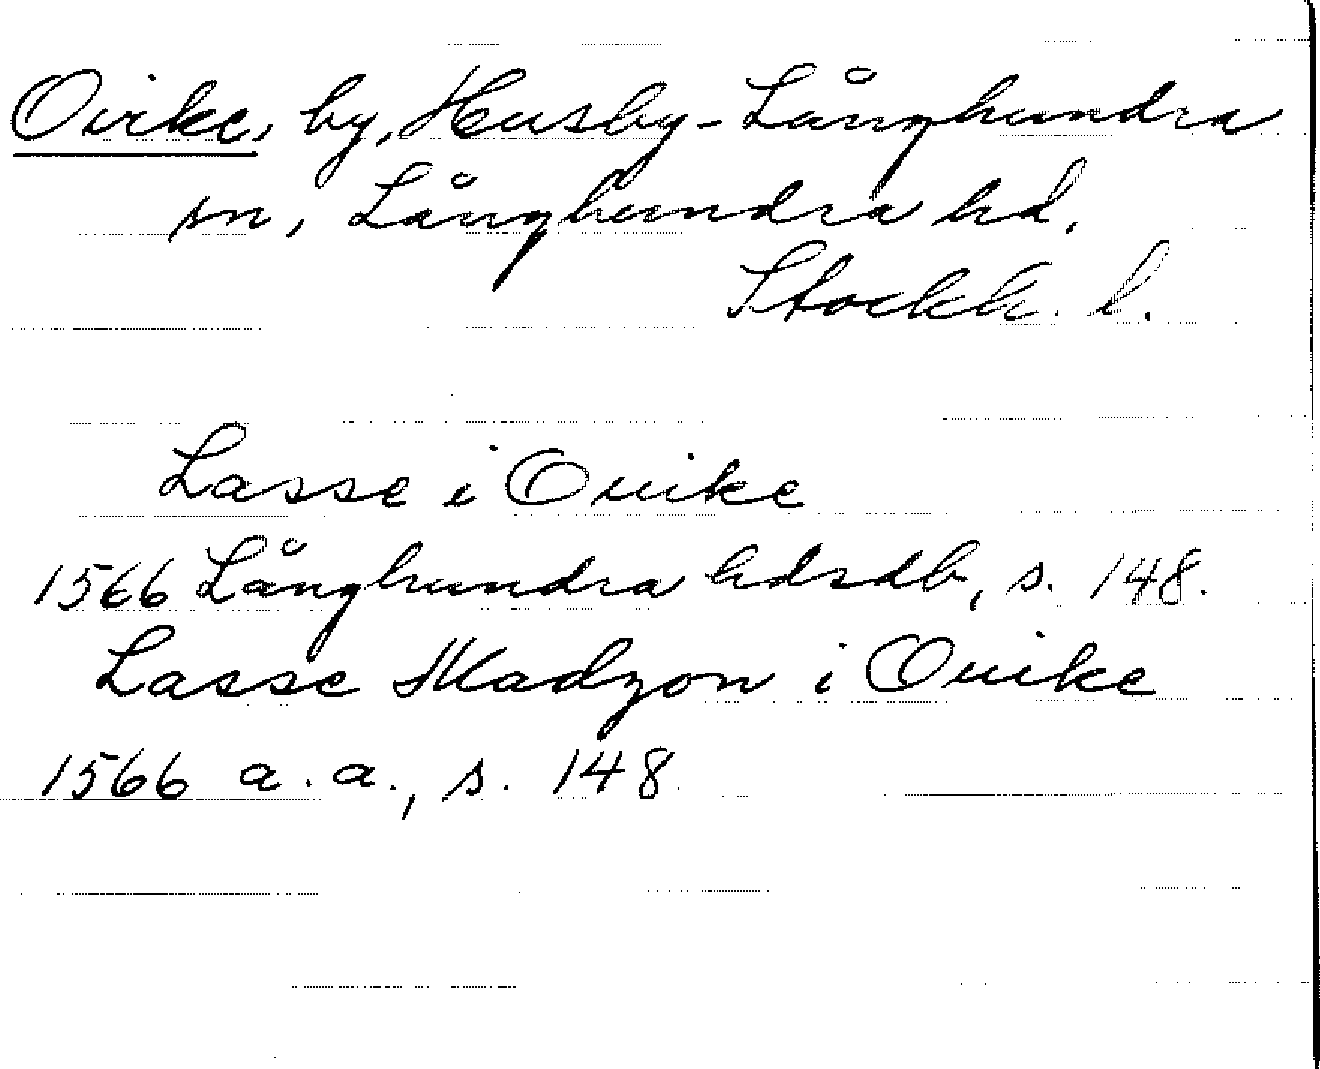 Ovike, by, Husby-Långhundra
sn, Långhundra hd.
Stockh. l.
Lasse i Ouike
1566 Långhundra hdsdb, s. 148.
Lasse Madzon i Ouike
1566 a. a., s. 148